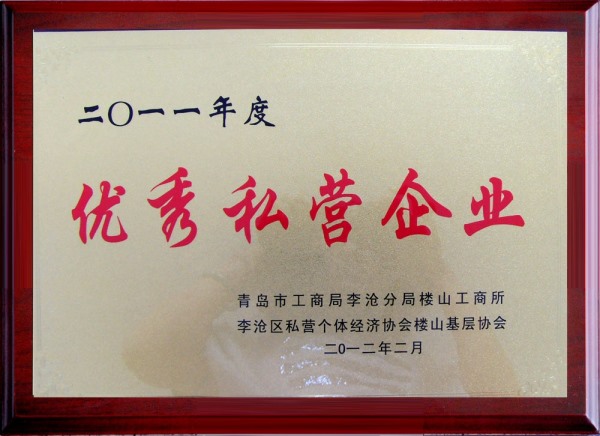 二〇一一年度
优秀私营企业
青岛市工商局李沧分局楼山工商所
李沧区私营个体经济协会楼山基层协会
二0一二年二月